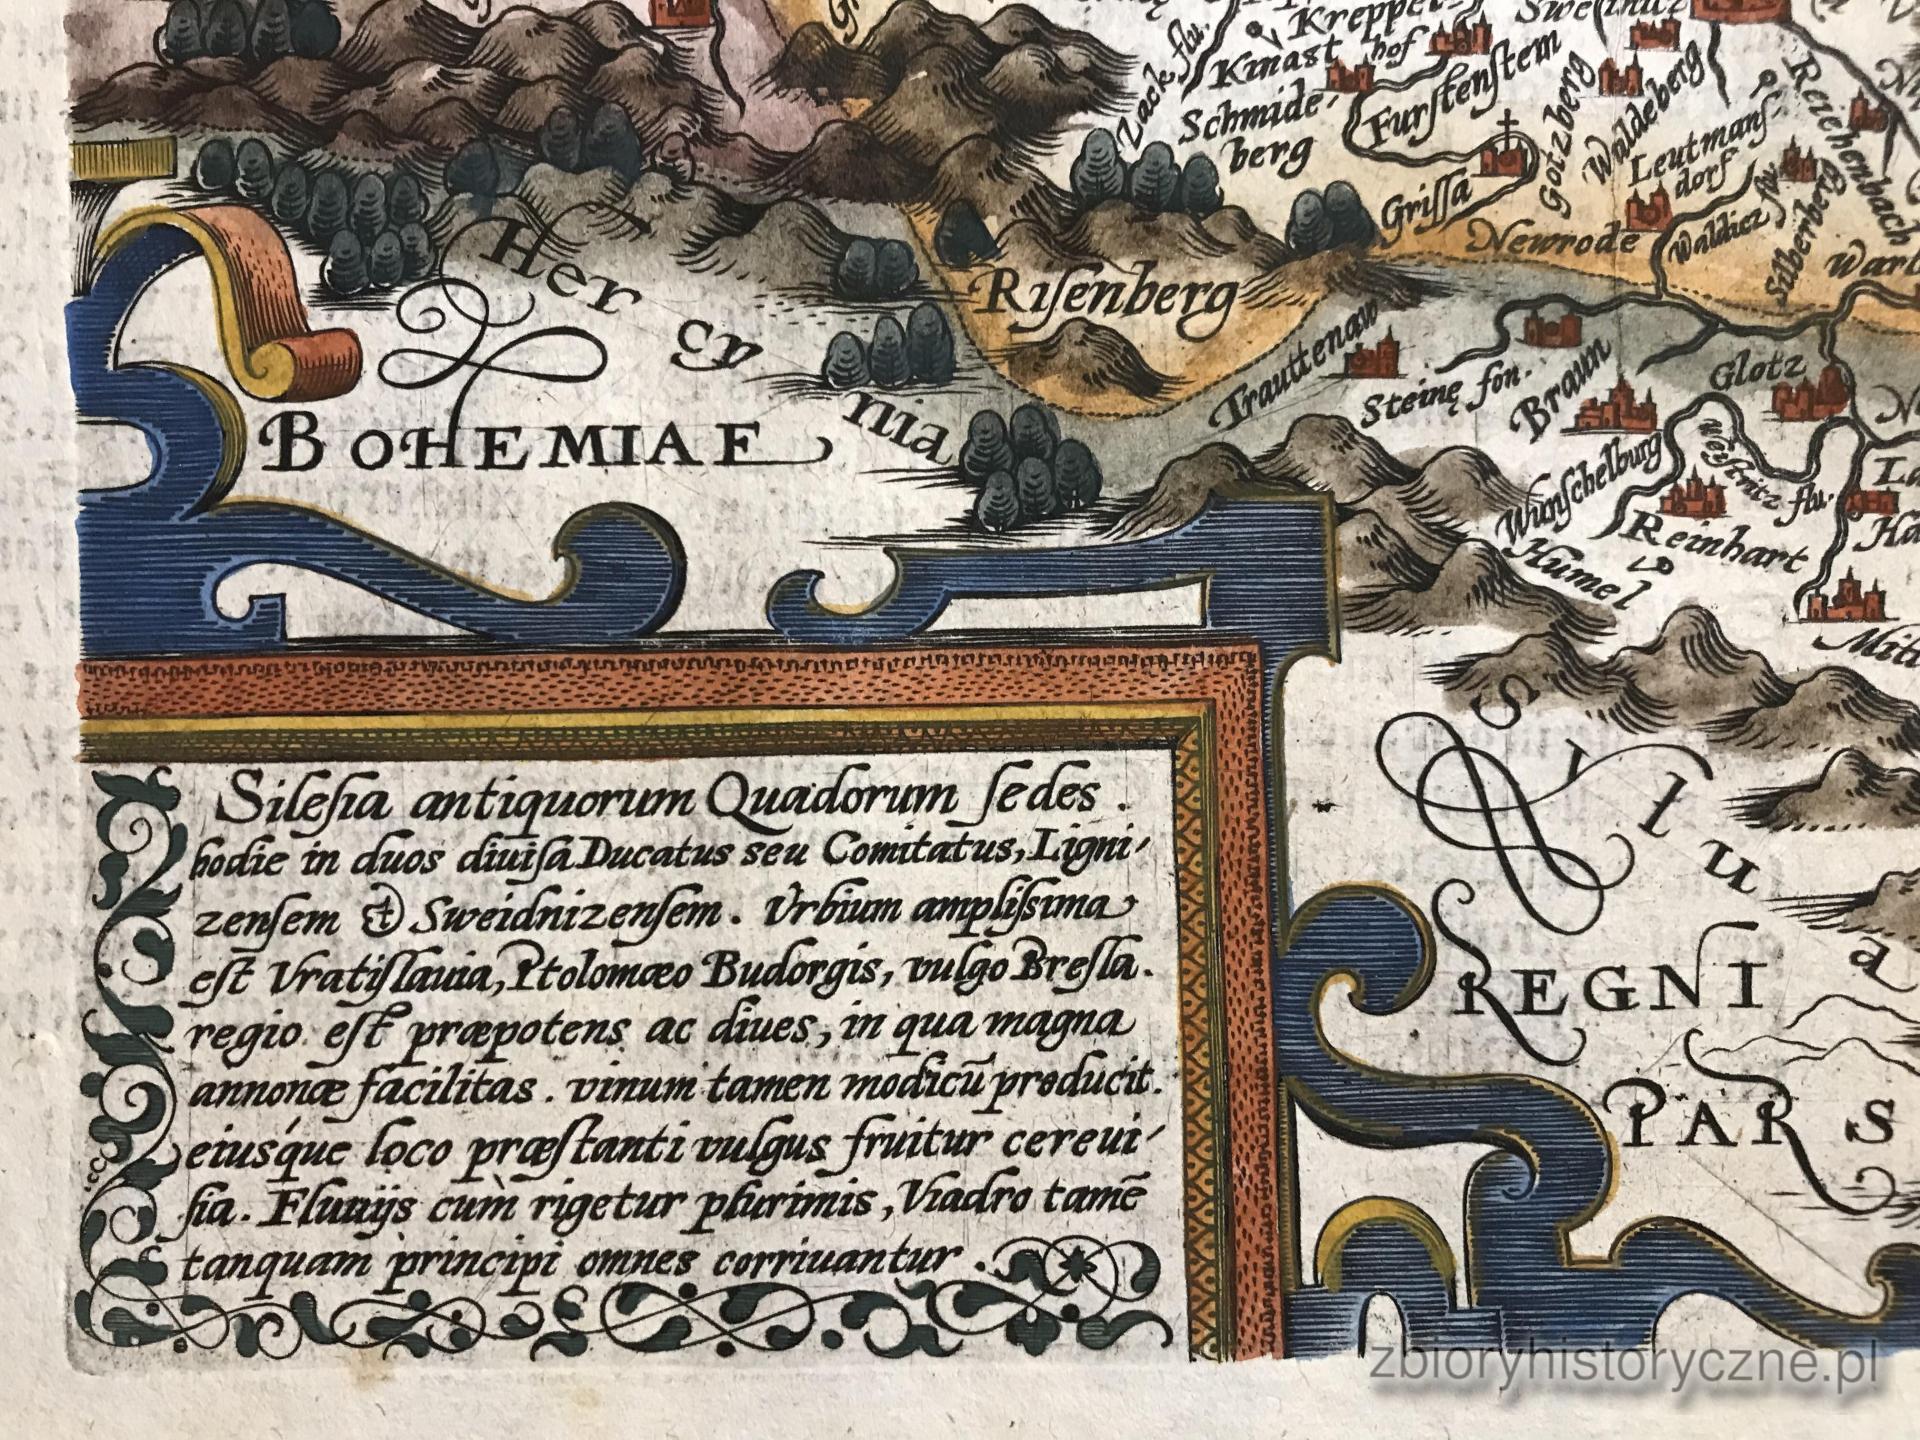 Zack flu.
Kreppel
Kinast
hof
Schmide-
berg
Furſtenſtein
Gotzberg
Waldeberg
Leutmanſ-
dorf
Reichenbach
Griſſa
Newrode
Waldicz flu.
Silberberg
Riſenberg
Her cy nia
BOHEMIAE
Trauttenaw
Steinę fon.
Braun
Glotz
Wunſchelburg
Neſtritz flu.
Reinhart
Humel
S i l u a
REGNI
PARS
Sileſia antiquorum Quadorum ſedes.
hodie in duos diuiſa Ducatus seu Comitatus, Ligni-
zenſem & Sweidnizenſem. Vrbium ampliſsima
eſt Vratiſlauia, Ptolomæo Budorgis, vulgo Breſla.
regio eſt præpotens ac diues, in qua magna
annonæ facilitas. vinum tamen modicū producit.
eiusq́ue loco præſtanti vulgus fruitur cereui-
ſia. Fluuijs cum̀ rigetur plurimis, Viadro tamē
tanquam principi omnes corriuantur.
zbioryhistoryczne.pl